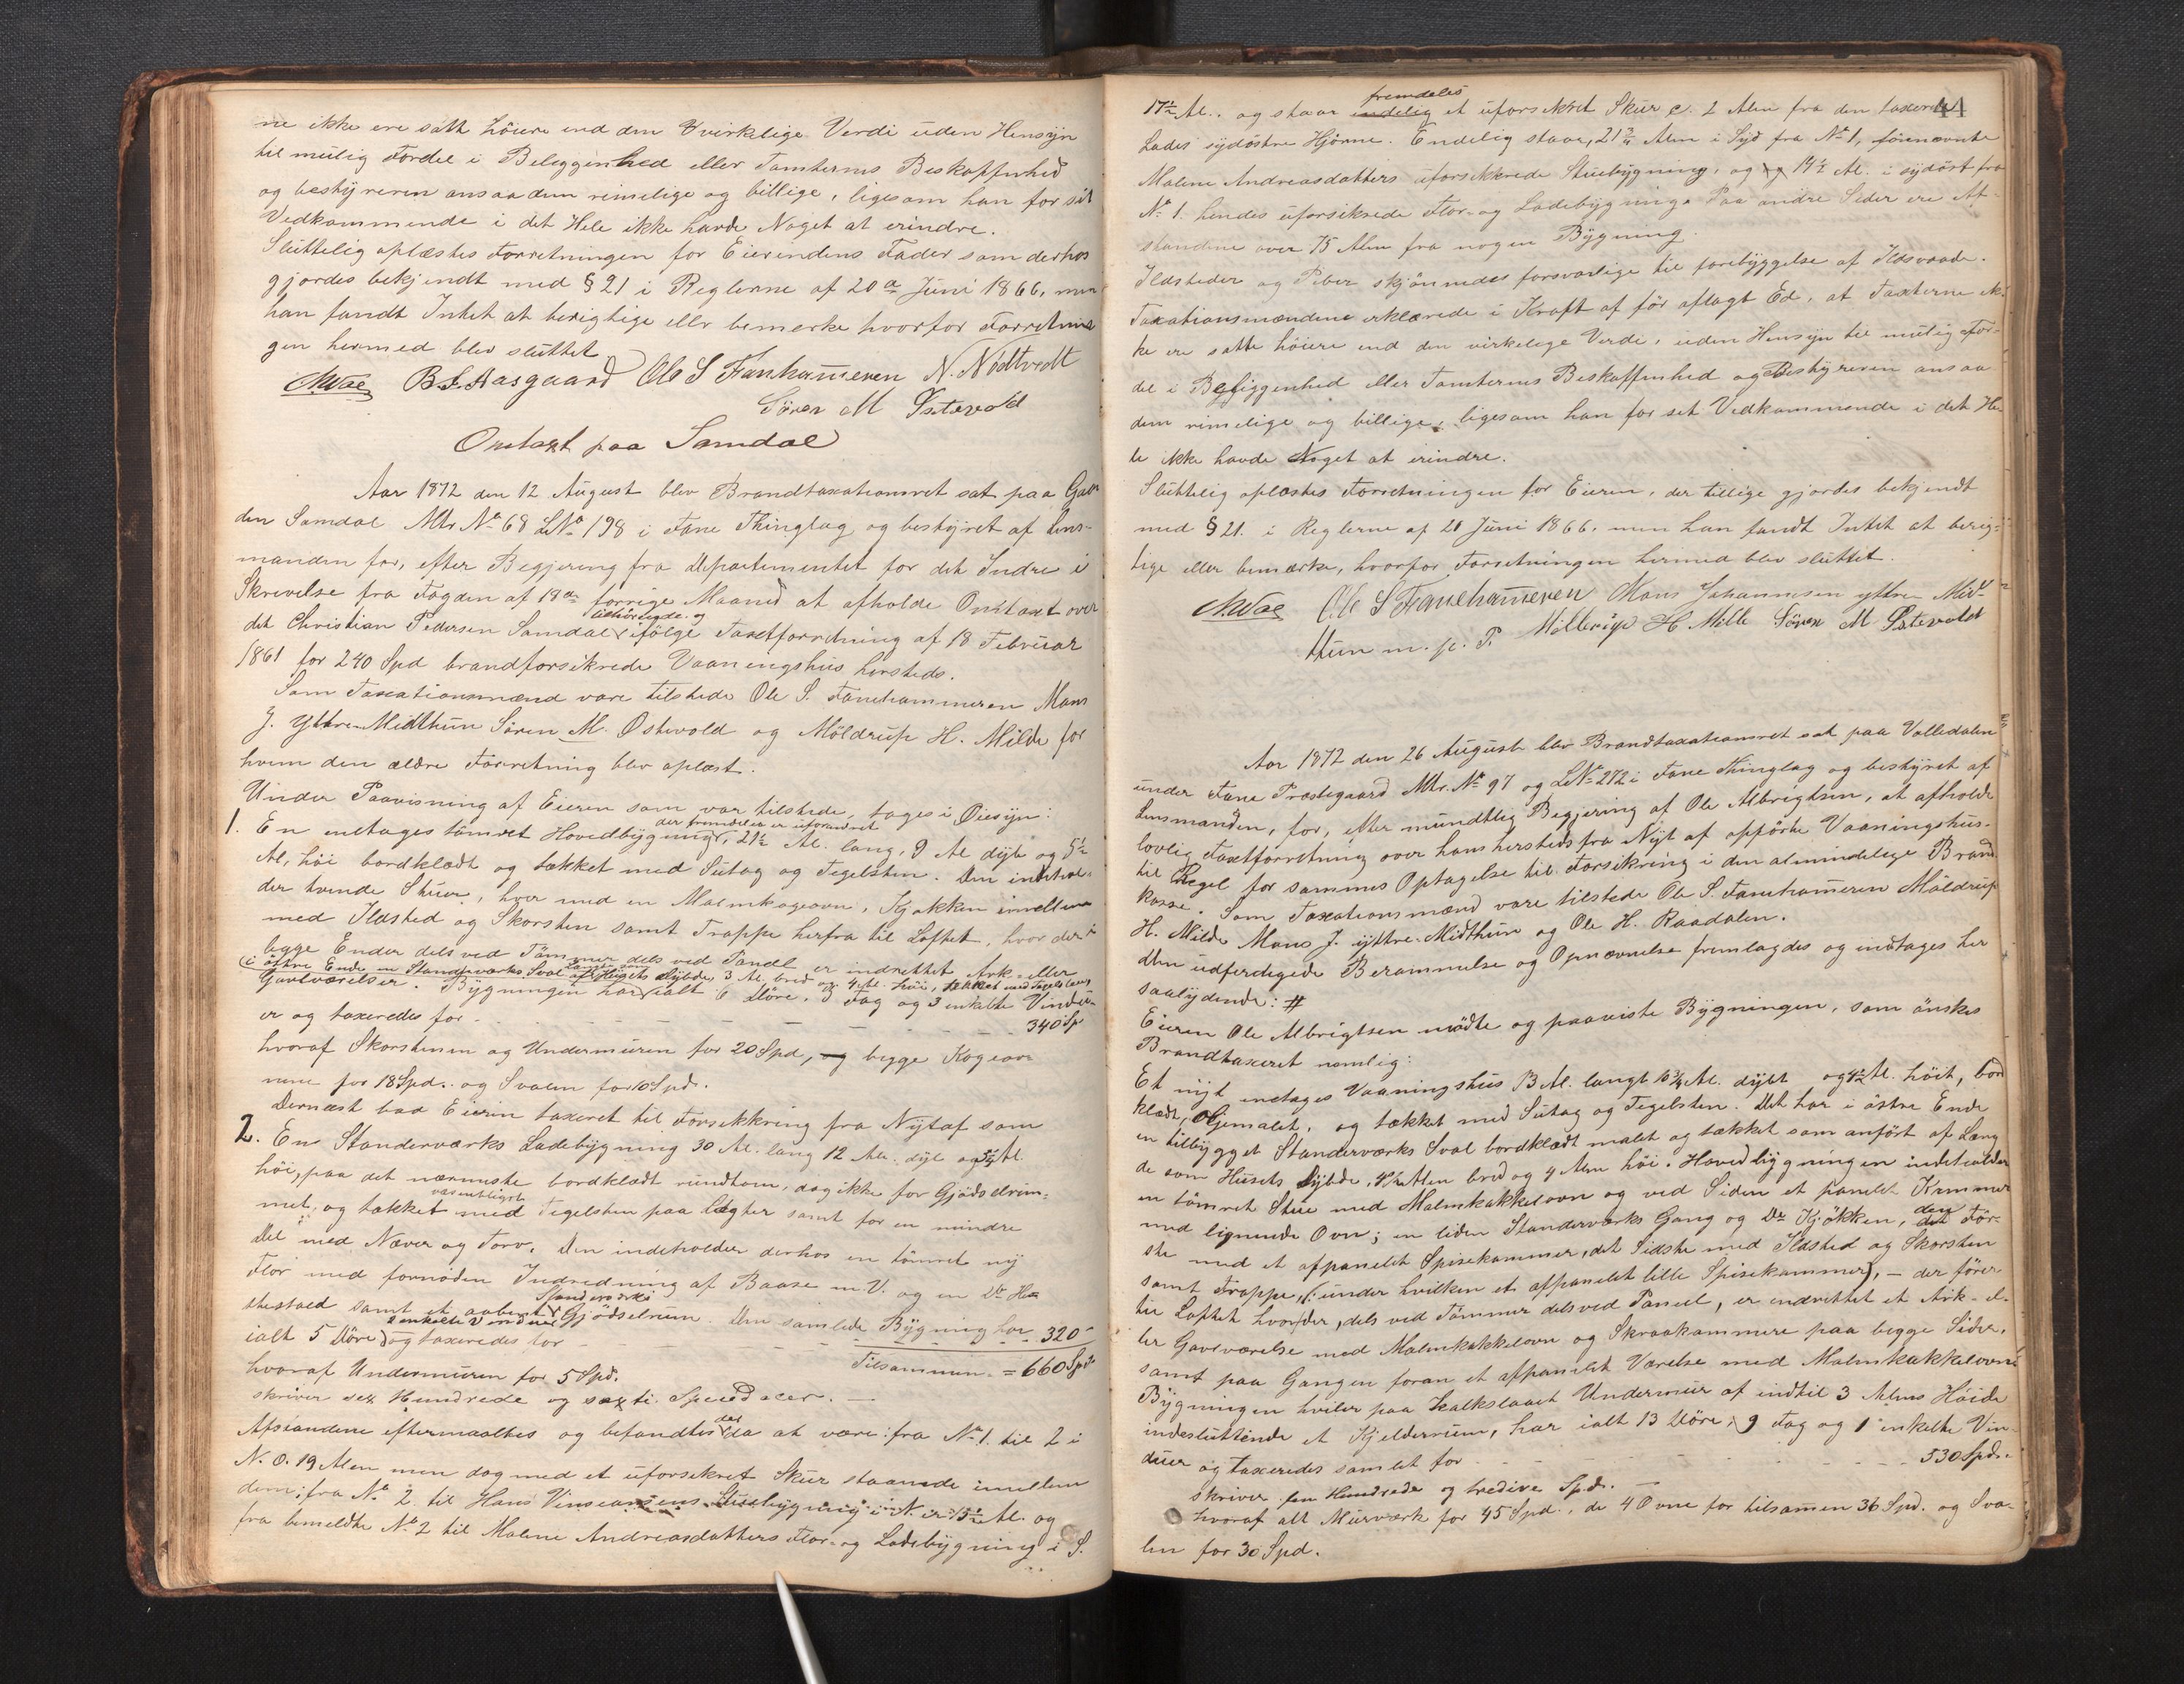 ne ikke ere satt höiere end den virkelige Verdi uden Hensyn
til mulig Fordel i Beleggenhed eller Tomternes Beskaffenhed
og bestyreren ansaa dem rimelige og billige, ligesom han for sit
Vedkommende i det Hele ikke havde Noget at erindre.
Sluttelig oplæstes Forretningen for Eierendens Fader som derhos
gjordes bekjendt med § 21 i Reglerne af 20de Juni 1866, men
han fandt Intet at berigtige eller bemerke hvorfor Forretnin
gen hermed blev sluttet
B. L. Aasgaard Ole S Fanehammeren N. Nödtvedt
Sören M Östevold
Omtaxt paa Samdal
Aar 1872 den 12 August blev Brandtaxationsret sat paa Gaar
den Samdal Mtr. No 68 LNo 198 i Fane Thinglag og bestyret af Lens-
manden for, efter Begjering fra Departementet for det Indre i
Skrivelse fra Fogden af 18de forrige Maaned at afholde Omtaxt over
det Christian Pedersen Samdal tilhörende og ifölge Taxtforretning af 18 Februar
1861 for 240 Spd brandforsikrede Vaaningshus hersteds.
Som Taxationsmænd vare tilstede Ole S. Fanehammeren Mons
J. Yttre-Midthun Sören M. Östevold og Möldrup H. Milde for
hvem den ældre Forretning blev oplæst.
Under Paavisning af Eieren som var tilstede, toges i Öiesyn:
1. En enetages tömret Hovedbygning, der fremdeles er uforandret 21½ Al. lang, 9 Al dyb og 5½
Al, höi bordklædt og tækket med Sutag og Tegelsten. Den indehol-
der tvende Stuer, hver med en Malmkogeovn, Kjøkken imellem
med Ildsted og Skorsten samt Trappe herfra til Loftet, hvor der i
begge Ender dels ved Tömmer dels ved Panel er indrettet Ark- eller
i östre Ende en Standværks Sval af Husets Dybde, 3 Al. bred og 4 Al. höi, tækket med Tegelsten,
Gavlværelser. Bygningen har ialt 6 Döre, 3 Fag og 3 enkelte Vindu-
er og taxeredes for - - - 340 Sp
hvoraf Skorstenen og Undermuren for 20 Spd, og begge Kogeov-
nene for 18 Spd. og Svalen for 10 Spd.
Dernæst bad Eieren taxeret til Forsikkring fra Nytaf som
2. En Standerværks Ladebygning 30 Al. lang 12 Al. dyb og 5¼ Al.
höi, paa det nærmeste bordklædt rundtom, dog ikke for Gjödselrum-
met, og tækket væsentligst med Tegelsten paa Lægter samt for en mindre
Del med Næver og Torv. Den indeholder derhos en tömret ny
Flor med fornöden Indredning af Baase m. V. og en Do He-
stestald samt et aabent Standerværks Gjödselrum. Den samlede Bygning har
ialt 5 Döre, 2 enkelte Vinduer og taxeredes for - - - 320 "
Tilsammen = 660 Spd
hvoraf Undermuren for 5 Spd.
skriver sex Hundrede og sexti Speciedaler. -
Afstandene eftermaaltes og befandtes der da at være: fra No 1. til 2 i
N. O. 19 Alen men dog med et uforsikret Skur staaende imellem
dem; fra No 2 til Hans Stuebygning i N. er 15½ Al. og
fra bemeldte No 2 til Malene Andreasdatters Flor- og Ladebygning i S.
44
17½ Al.. og staar fremdeles et uforsikret Skur c. 2 Alen fra den taxerede
Lades sydöstre Hjörne. Endelig staar, 21¾ Alen i Syd fra No 1, förnævnte
Malene Andreasdatters uforsikrede Stuebygning, og 14½ Al. i sydöst fra
No 1. hendes uforsikrede Flor- og Ladebygning. Paa andre Sider ere Af-
standene over 75 Alen fra nogen Bygning.
Ildsteder og Piber skjönnedes forsvarlige til forebyggelse af Ildsvaade.
Taxationsmændene erklærede i Kraft af för aflagt Ed, at Taxterne ik-
ke ere satte höiere end den virkelige Verdi, uden Hensyn til mulig For-
del i Beliggenhed eller Tomternes Beskaffenhed og Bestyreren ansaa
dem rimelige og billige, ligesom han for sit Vedkommende i det He-
le ikke havde Noget at erindre.
Sluttelig oplæstes Forretningen for Eieren, der tillige gjordes bekjendt
med § 21. i Reglerne af 20 Juni 1866. men han fandt Intet at berig-
tige eller bemærke, hvorfor Forretningen hermed blev sluttet.
Ole S Fanehammeren Mons Johannesen yttre Mid-
thun m. p. P. Möllerup H Milde Sören M. Östevold
Aar 1872 den 26 August blev Brandtaxationsret sat paa Volledalen
under Fane Præstegaard Mtr. No 97 og LNo 272 i Fane Thinglag og bestyret af
Lensmanden, for, efter mundtlig Begjering af Ole Albrigtsen, at afholde
lovlig Taxtforretning over hans hersteds fra Nyt af opförte Vaaningshus
til Regel for sammes Optagelse til Forsikring i den almindelige Brand-
kasse. Som Taxationsmænd vare tilstede Ole S. Fanehammeren Möldrup
H. Milde Mons J. yttre-Midthun og Ole H. Raadalen.
Den udferdigede Berammelse og Opnævnelse fremlagdes og indtages her
saalydende: #
Eieren Ole Albrigtsen mödte og paaviste Bygningen, som önskes
Brandtaxeret nemlig:
Et nyt enetages Vaaningshus 13 Al. langt 10¾ Al. dybt og 4½ Al. höit, bord
klædt, Oljemalet, og tækket med Sutag og Tegelsten. Det har i östre Ende
en tilbygget Standerværks Sval bordklædt malet og tækket som anfört af Læng-
de som Husets Dybde, 4½ Alen bred og 4 Alen höi. Hovedbygningen indeholder
en tömret Stue med Malmkakkelovn og ved Siden et panelet Kammer
med lignende Ovn; en liden Standerværks Gang og Do Kjökken, den För-
ste med et afpanelet Spisekammer, det Sidste med Ildsted og Skorsten
samt Trappe, (: under hvilken et afpanelet lille Spisekammer), - der förer
til Loftet hvor der, dels ved Tömmer dels ved Panel, er indrettet et Ark- el-
ler Gavlværelse med Malmkakkelovn og Skraakammere paa begge Sider,
samt paa Gangen foran et afpanelet Værelse med Malmkakkelovn
Bygningen hviler paa kalkslaaet Undermur af indtil 3 Alens Höide
indesluttende et Kjelderrum, har ialt 13 Döre, 9 Fag og 1 enkelte Vin-
duer og taxeredes samlet for - - - 530 Spd.
skriver fem Hundrede og tredive Spd. -
hvoraf alt Murværk for 45 Spd., de 4 Ovne for tilsamen 36 Spd. og Sva-
len for 30 Spd.